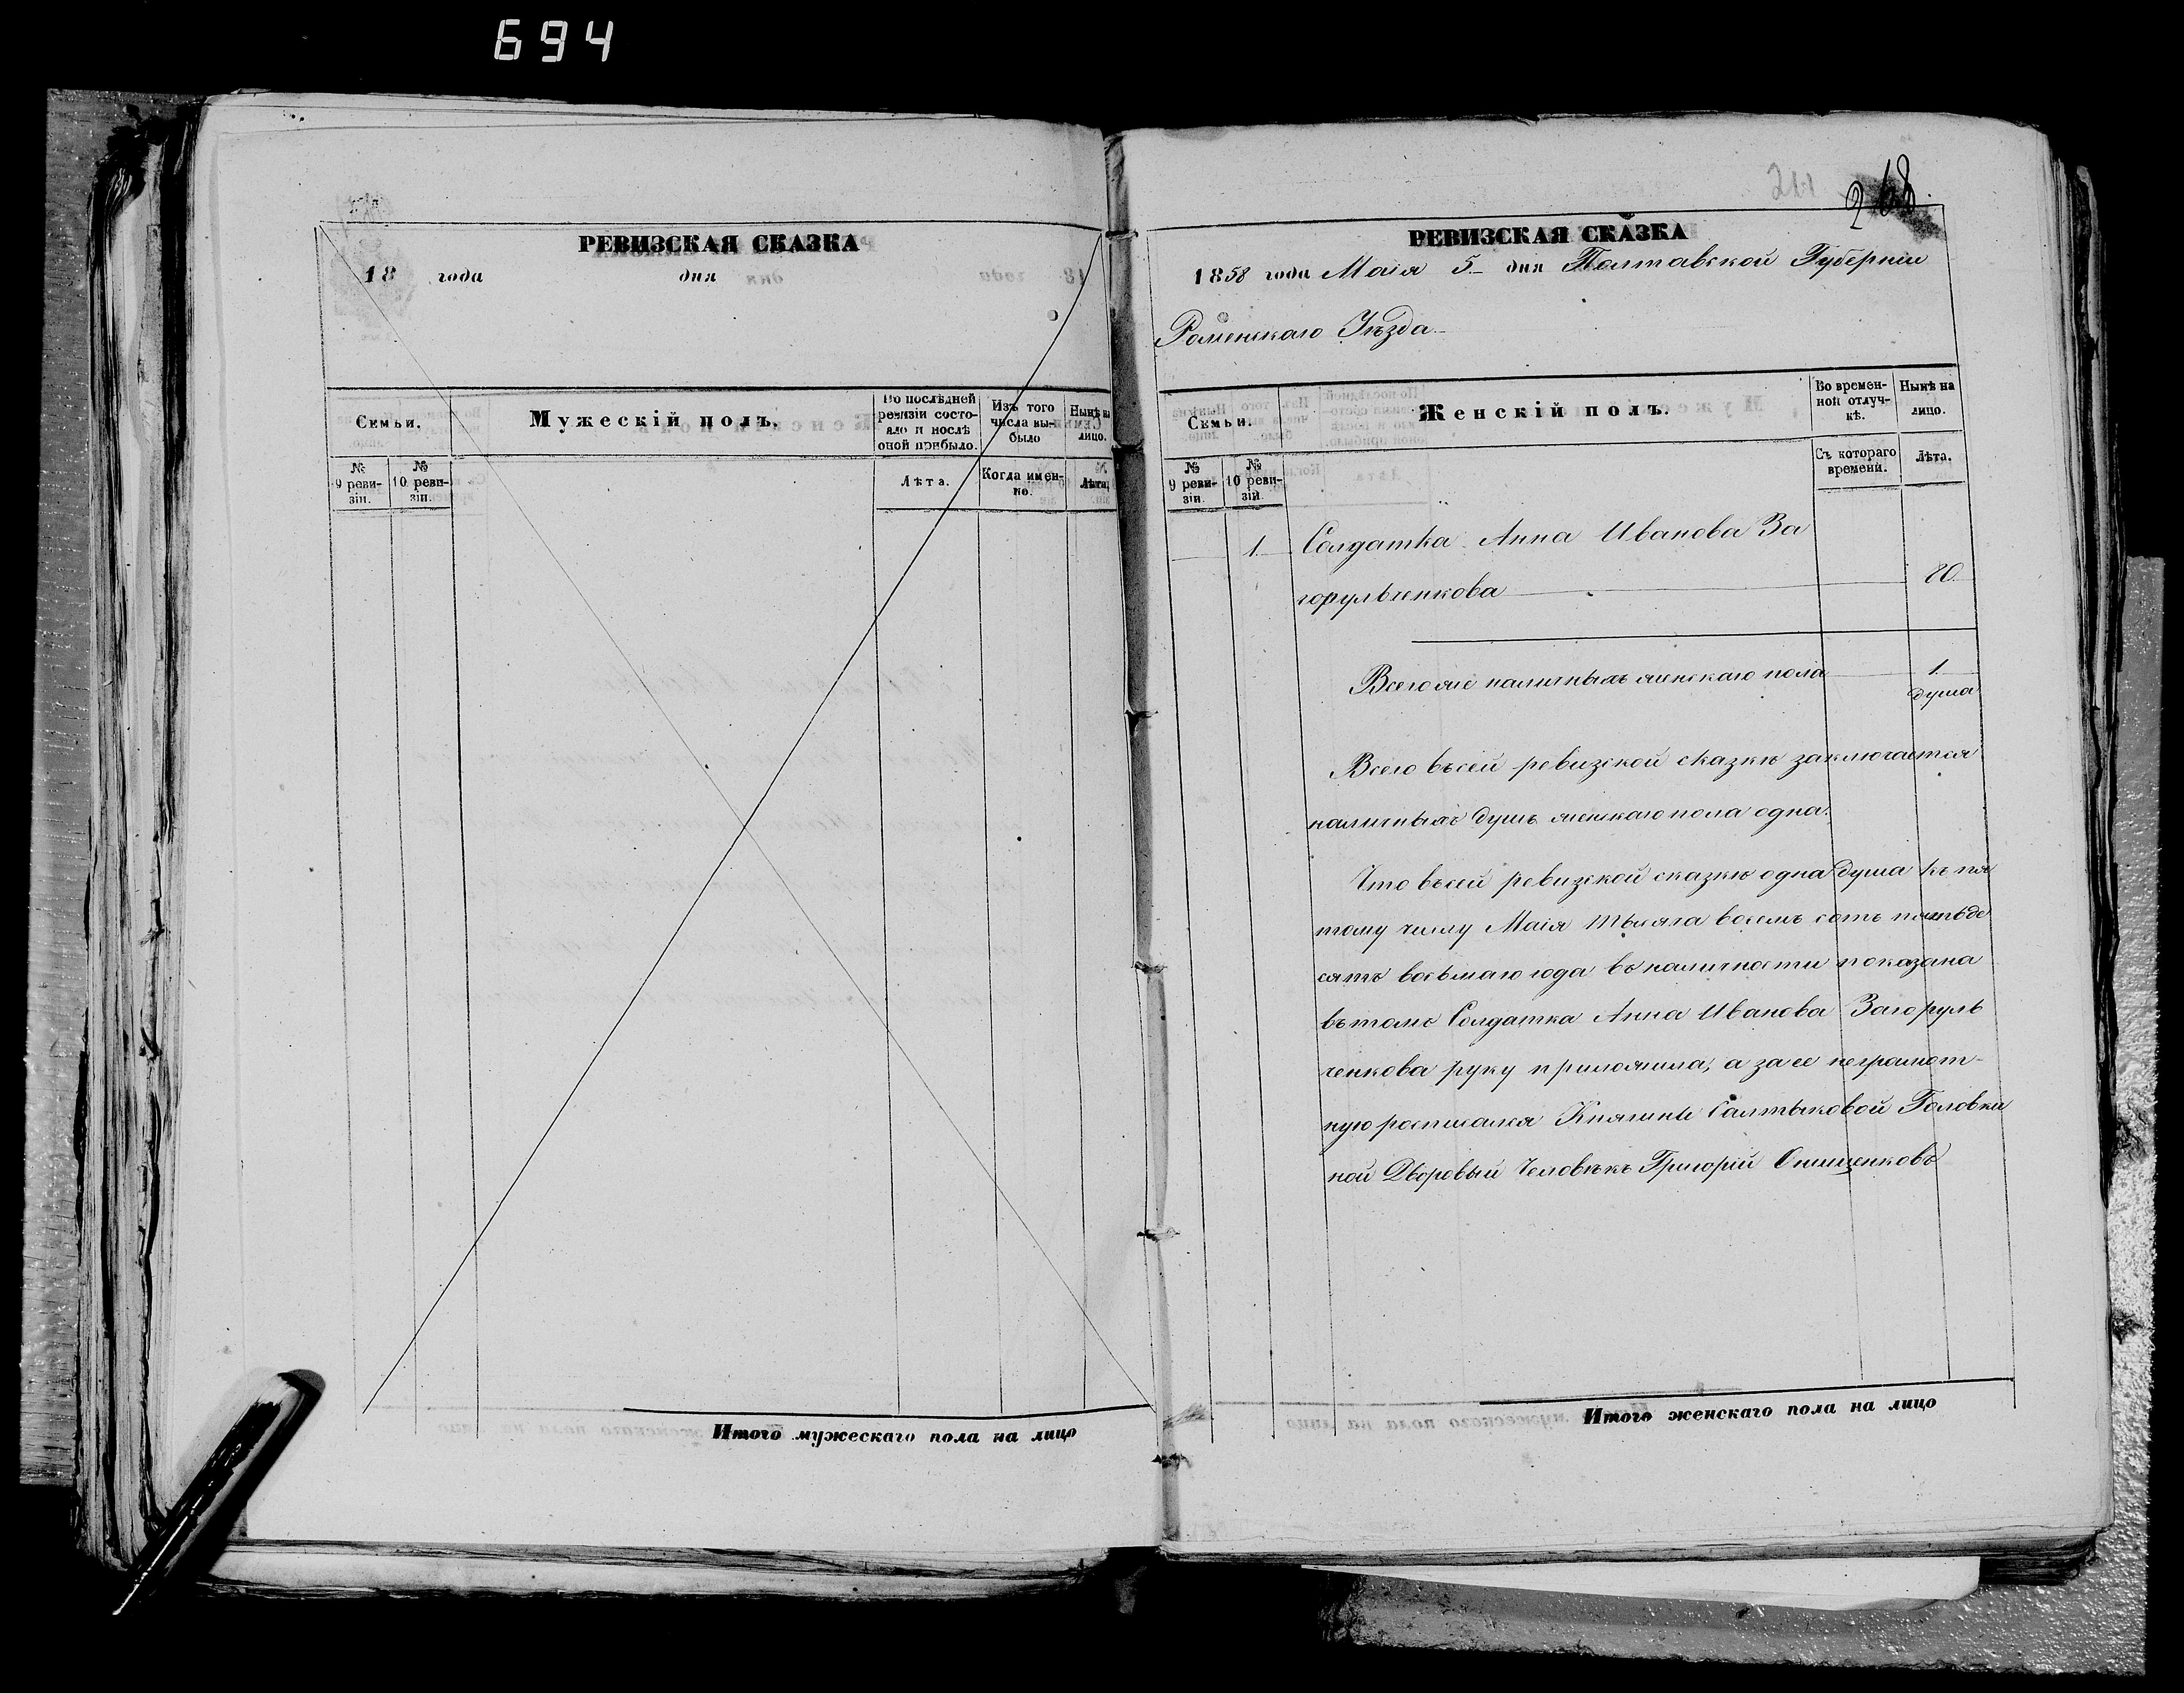 694
РЕВИЗСКАЯ СКАЗКА
18 года дня
Семьи.
Мужескій полъ.
По послѣдней ревизіи состояло и послѣ оной прибыло.
Изъ того числа выбыло
Нынѣ на лицо.
№ 9 ревизіи.
№ 10 ревизіи.
Лѣта.
Когда именно.
Лѣта.
Итого мужескаго пола на лицо
268
РЕВИЗСКАЯ СКАЗКА
1858 года Маія 5 дня Полтавской Губерніи
Роменскаго Уѣзда
Семьи.
Женскій полъ.
Во временной отлучкѣ.
Нынѣ на лицо.
№ 9 ревизіи.
№ 10 ревизіи.
Съ котораго времени.
Лѣта.
1 Солдатка Анна Иванова За
горульченкова 80
Всего же наличныхъ женскаго пола 1
душа
Всего въ сей ревизской сказкѣ заключается
наличныхъ душъ женскаго пола одна.
Что въ сей ревизской сказкѣ одна душа къ пя
тому числу Маія тысяча восемь сотъ пятьде
сятъ восьмаго года въ наличности показана
въ томъ Солдатка Анна Иванова Загоруль
ченкова руку приложила, а за ее неграмот-
ную росписался Княгини Салтыковой Головки
ной Дворовый Человѣкъ Григорій Онищенковъ
Итого женскаго пола на лицо